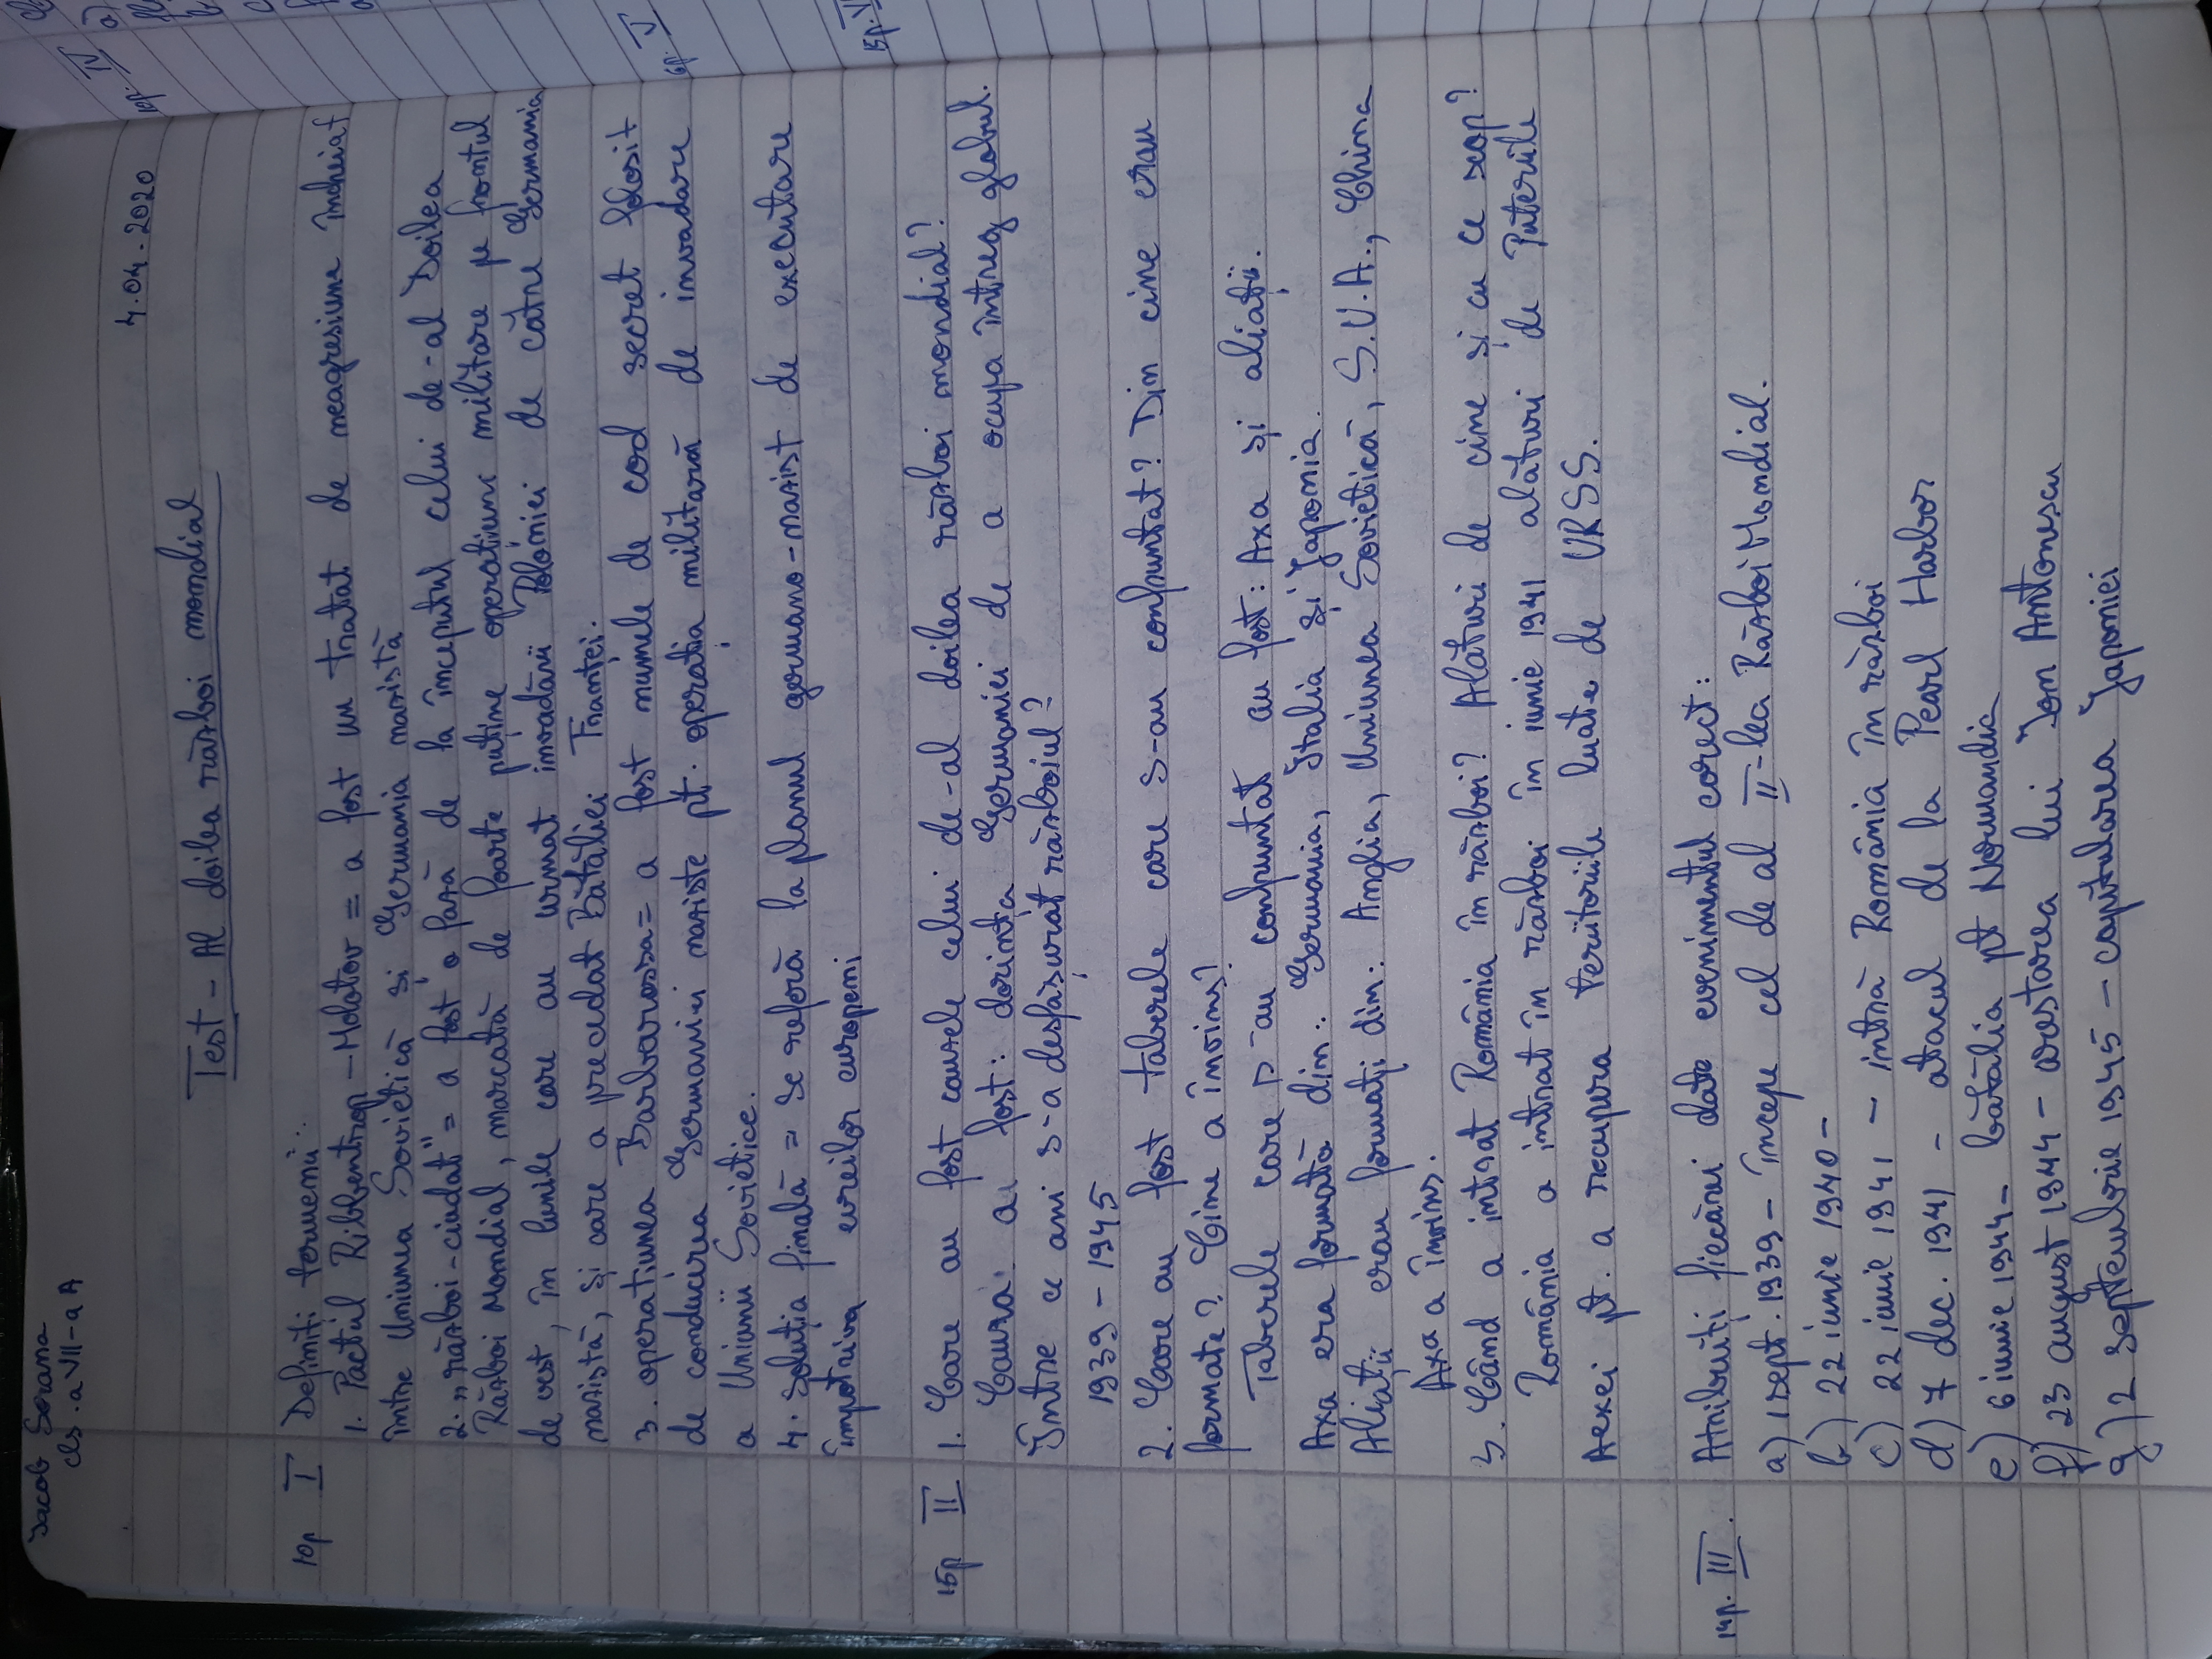 Iacob Serana
cls. a VII-a A
4.04.2020
Test - Al doilea război mondial
10p I Definiți termenii:
1. Pactul Ribbentrop-Molotov = a fost un tratat de neagresiune încheiat
între Uniunea Sovietică și Germania nazistă
2. „război-ciudat" = a fost o fază de la începutul celui de-al Doilea
Război Mondial, marcată de foarte puține operațiuni militare pe frontul
de vest, în lunile care au urmat invadării Poloniei de către Germania
nazistă, și care a precedat Bătăliei Franței.
3. operațiunea Barbarossa = a fost numele de cod secret folosit
de conducerea Germaniei naziste pt. operația militară de invadare
a Uniunii Sovietice.
4. Soluția finală = se referă la planul germano-nazist de executare
împotriva evreilor europeni
15p II 1. Care au fost cauzele celui de-al doilea război mondial?
Cauza a fost: dorința Germaniei de a ocupa întreg globul.
Între ce ani s-a desfășurat războiul?
1939-1945
2. Care au fost taberele care s-au confruntat? Din cine erau
formate? Cine a învins?
Taberele care s-au confruntat au fost: Axa și aliații.
Axa era formată din: Germania, Italia și Japonia.
Aliații erau formați din: Anglia, Uniunea Sovietică, S.U.A., China
Axa a învins.
3. Când a intrat România în război? Alături de cine și cu ce scop?
România a intrat în război în iunie 1941 alături de Puterile
Aexei pt. a recupera teritoriile luate de URSS.
14p. III. Atribuiți fiecărei date evenimentul corect:
a) 1 sept. 1939 - începe cel de al II-lea Război Mondial.
b) 22 iunie 1940 -
c) 22 iunie 1941 - intră România în război
d) 7 dec. 1941 - atacul de la Pearl Harbor
e) 6 iunie 1944 - bătălia pt Normandia
f) 23 august 1944 - arestarea lui Ion Antonescu
g) 2 septembrie 1945 - capitularea Japoniei
10p. IV
a)
6p. V
15p. VI